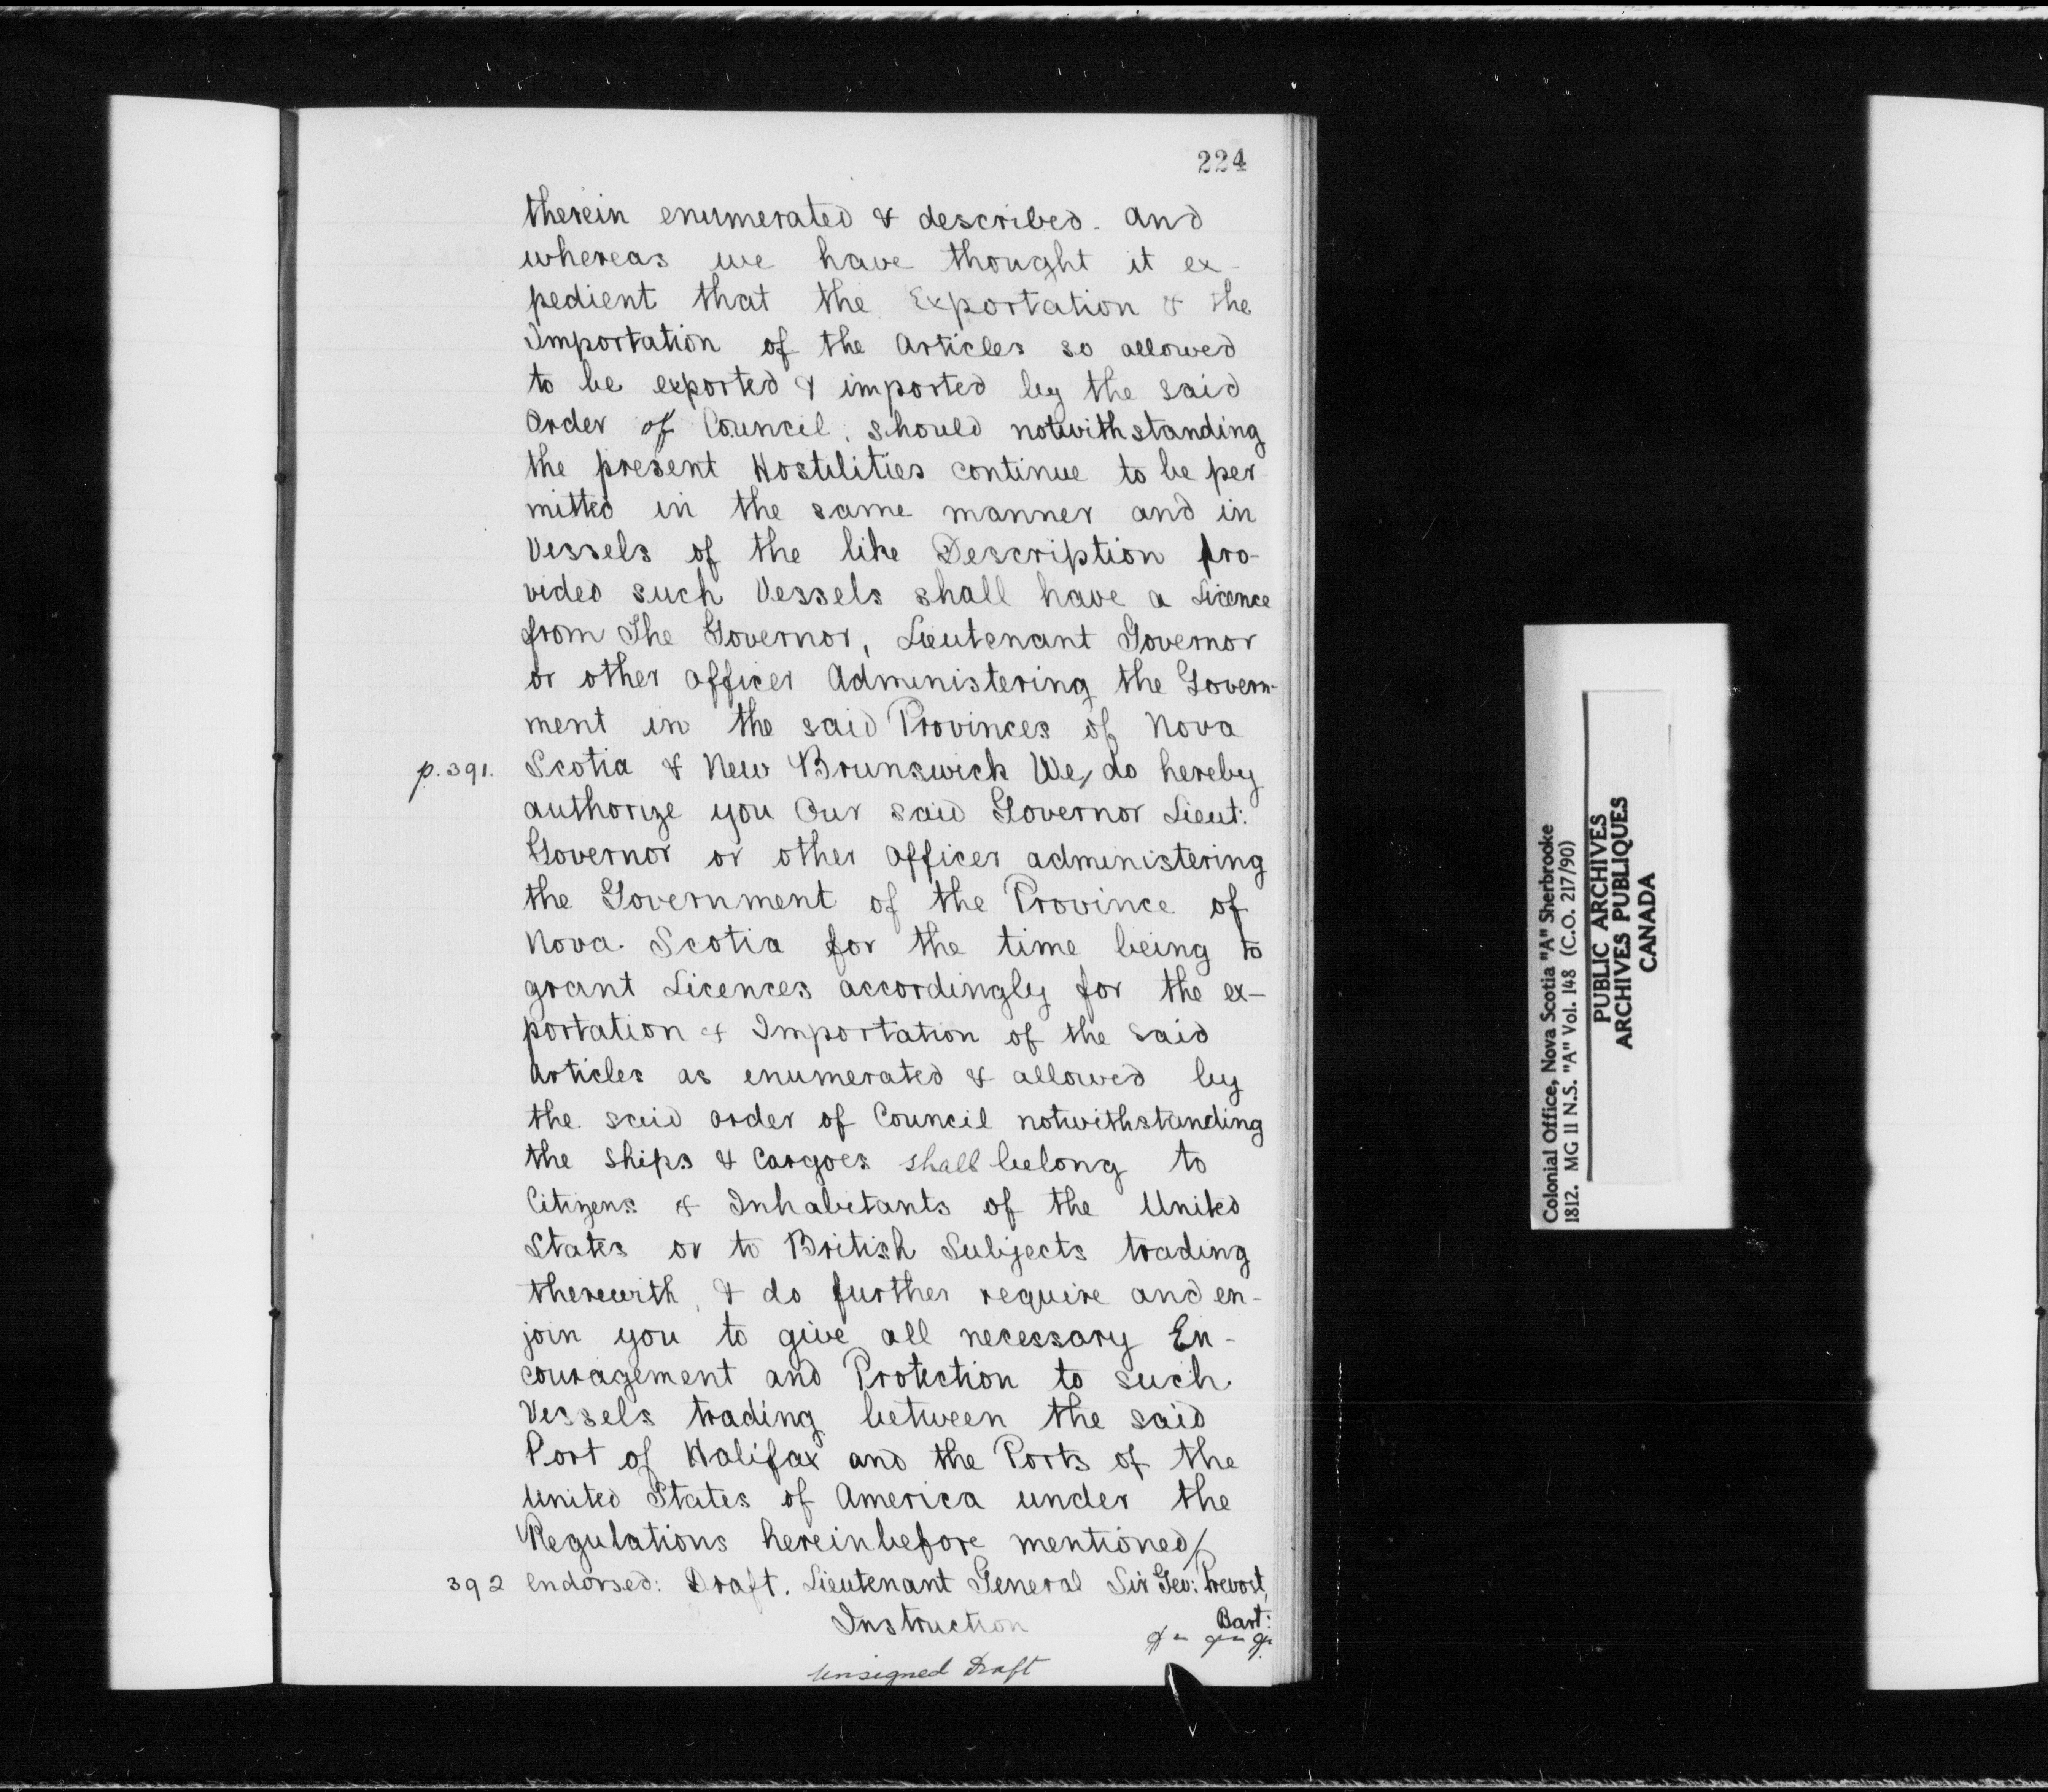 224
therein enumerated & described. And
whereas we have thought it ex-
pedient that the Exportation & the
Importation of the Articles so allowed
to be exported & imported by the said
Order of Council, should notwithstanding
the present Hostilities continue to be per-
mitted in the same manner and in
Vessels of the like Description pro-
vided such Vessels shall have a Licence
from The Governor, Lieutenant Governor
or other Officer Administering the Govern-
ment in the said Provinces of Nova
p. 391. Scotia & New Brunswick We, do hereby
authorize you Our said Governor Lieut:
Governor or other Officer administering
the Government of the Province of
Nova Scotia for the time being to
grant Licences accordingly for the ex-
portation & Importation of the said
Articles as enumerated & allowed by
the said Order of Council notwithstanding
the Ships & Cargoes shall belong to
Citizens & Inhabitants of the United
States or to British Subjects trading
therewith, & do further require and en-
join you to give all necessary En-
couragement and Protection to such
Vessels trading between the said
Port of Halifax and the Ports of the
United States of America under the
Regulations hereinbefore mentioned/
392 Endorsed: Draft. Lieutenant General Sir Geo: Prevost,
Bart:
Instruction
Unsigned Draft
Colonial Office, Nova Scotia "A" Sherbrooke
1812. MG 11 N.S. "A" Vol. 148 (C.O. 217/90)
PUBLIC ARCHIVES
ARCHIVES PUBLIQUES
CANADA